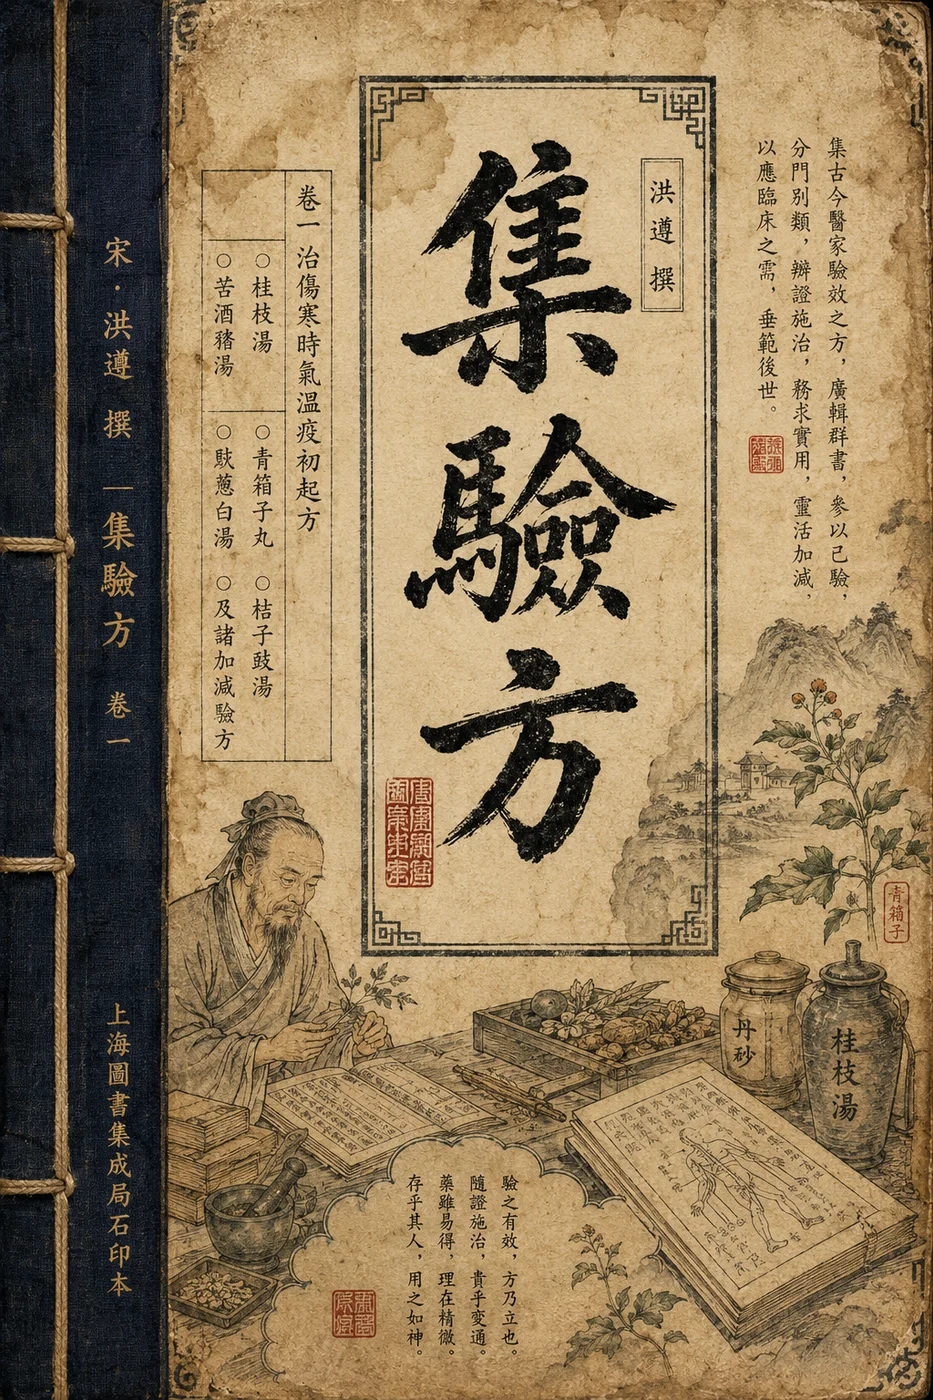 集驗方
洪遵 撰
集古今醫家驗效之方，廣輯群書，參以己驗，
分門別類，辨證施治，務求實用，靈活加減，
以應臨床之需，垂範後世。
卷一 治傷寒時氣溫疫初起方
○桂枝湯 ○青箱子丸 ○桔子豉湯
○苦酒豬湯 ○䭾蔥白湯 ○及諸加減驗方
宋·洪遵 撰｜集驗方 卷一
上海圖書集成局石印本
青箱子
丹砂
桂枝湯
驗之有效，方乃立也。
隨證施治，貴乎変通。
藥雖易得，理在精微。
存乎其人，用之如神。